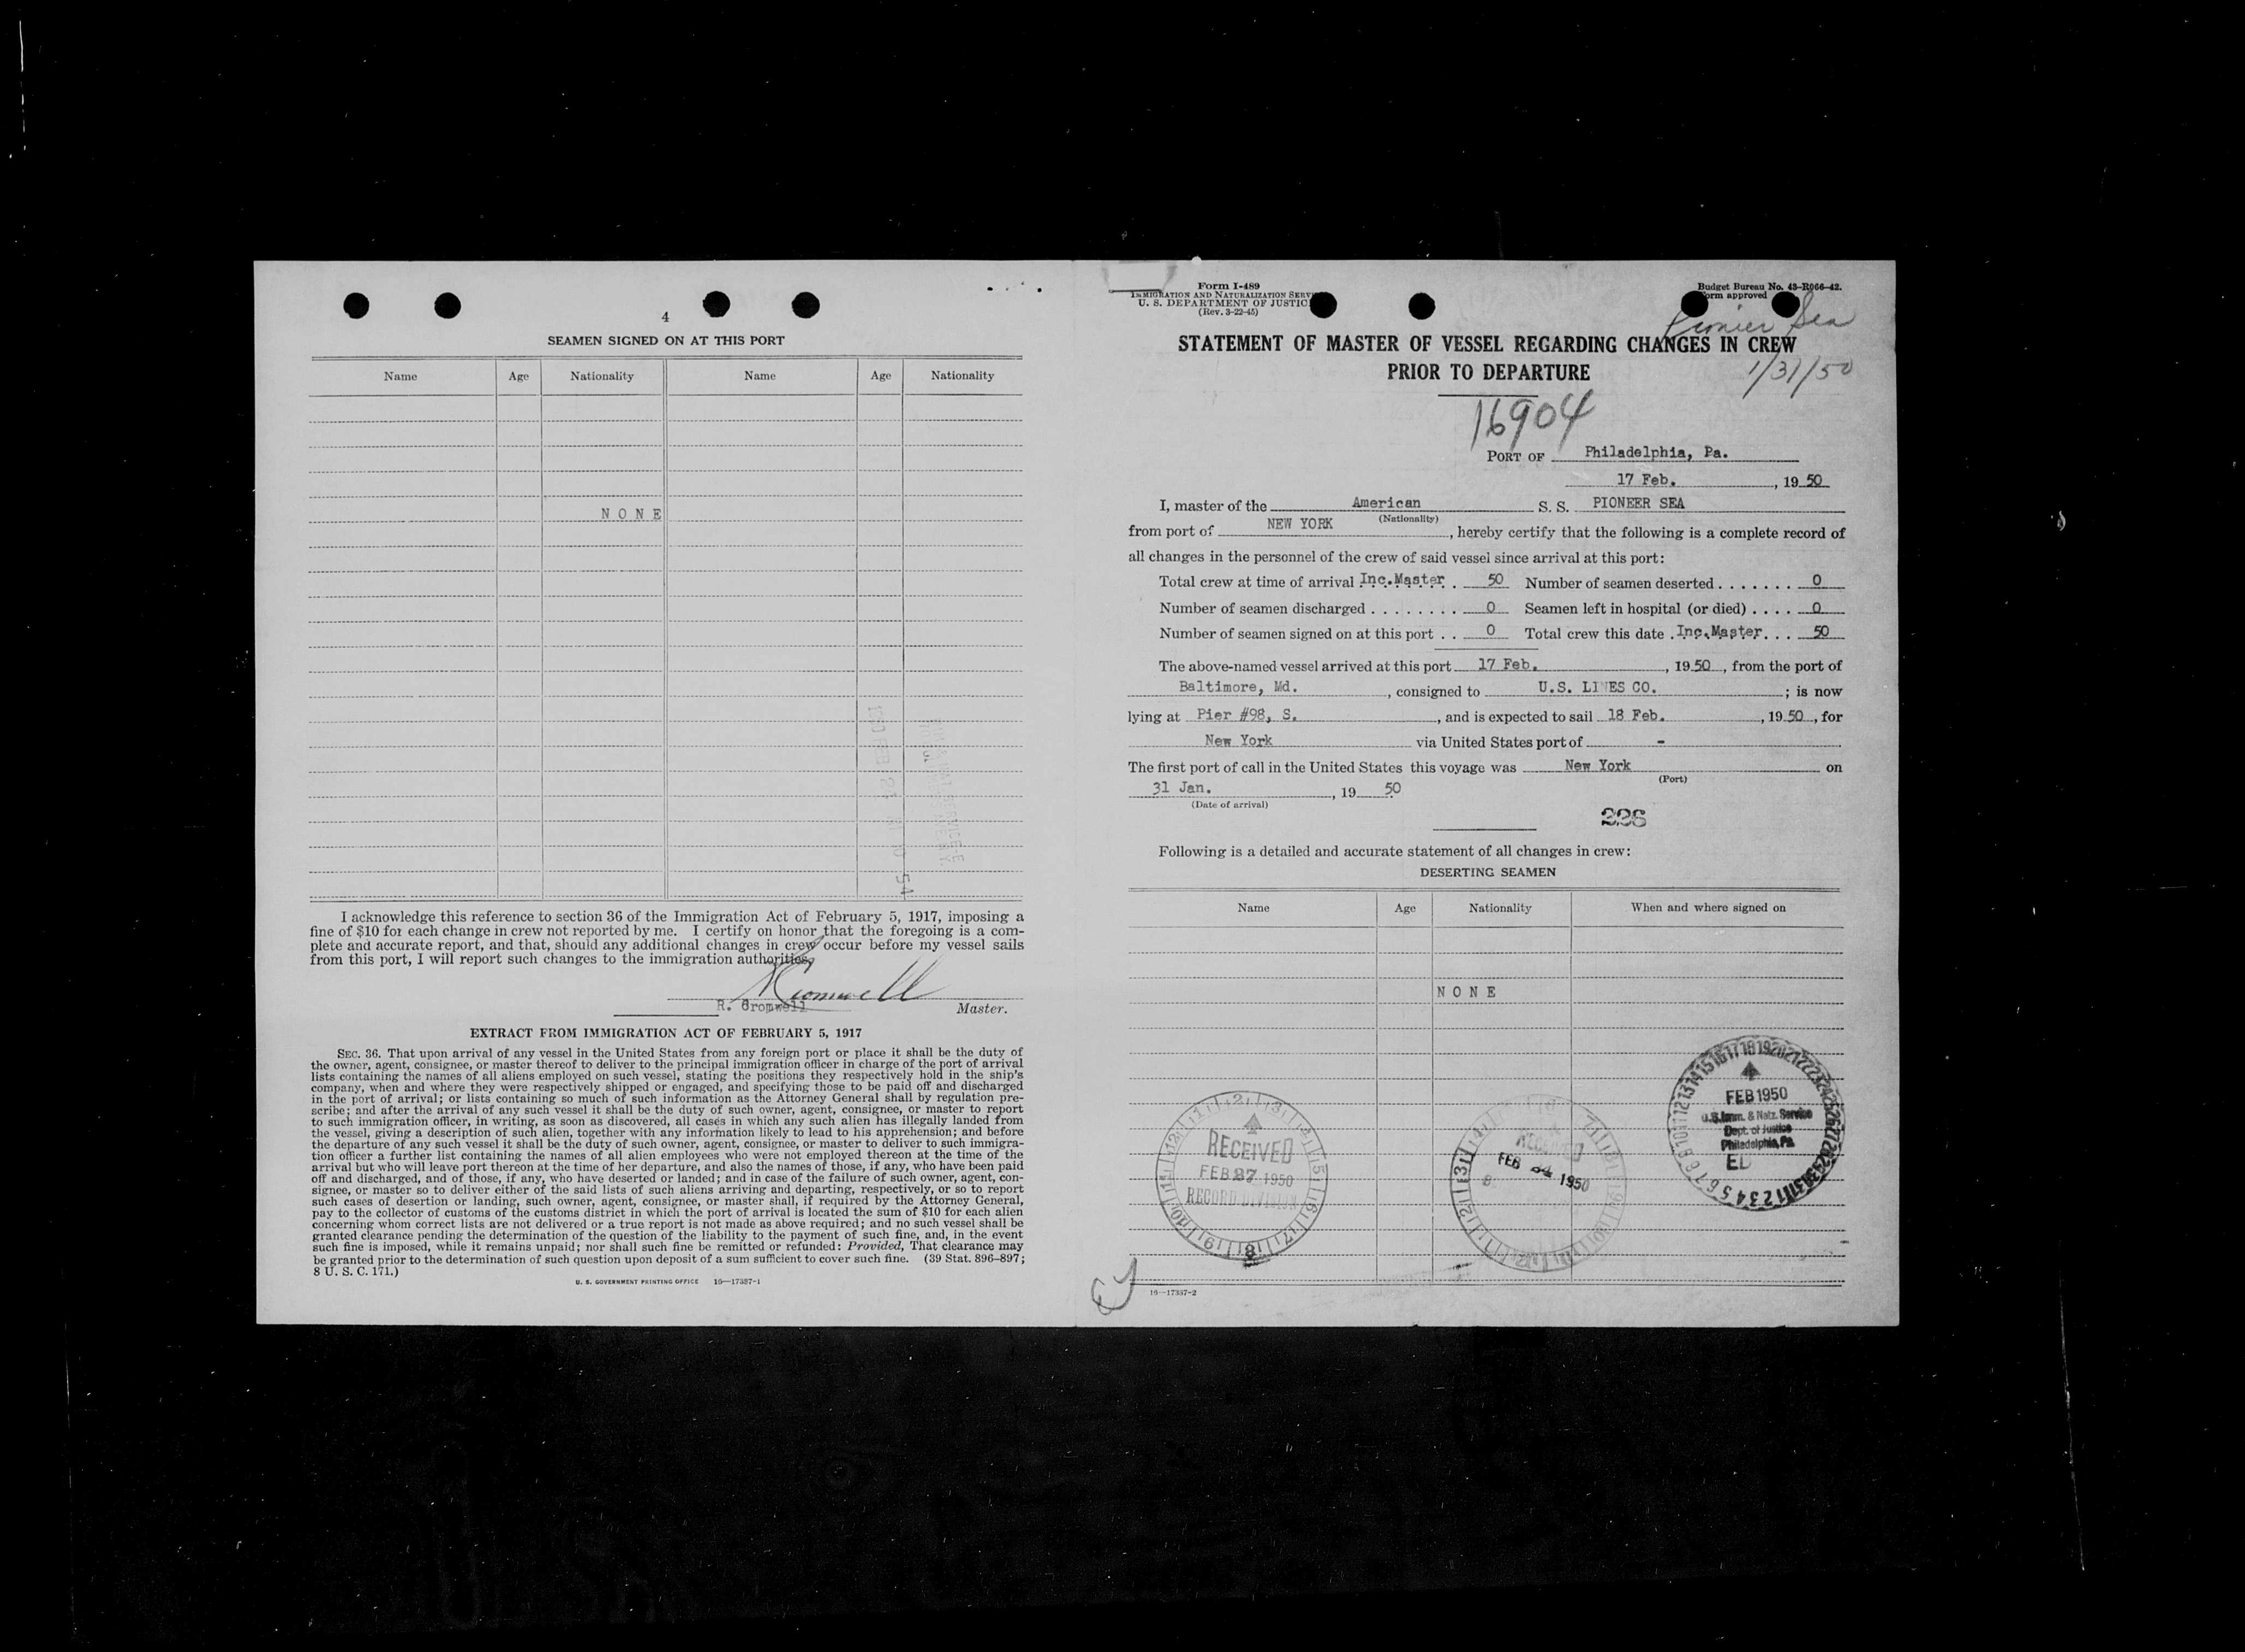 4
SEAMEN SIGNED ON AT THIS PORT
Name Age Nationality Name Age Nationality
NONE
I acknowledge this reference to section 36 of the Immigration Act of February 5, 1917, imposing a
fine of $10 for each change in crew not reported by me. I certify on honor that the foregoing is a com-
plete and accurate report, and that, should any additional changes in crew occur before my vessel sails
from this port, I will report such changes to the immigration authorities.
R. Cromwell
Master.
EXTRACT FROM IMMIGRATION ACT OF FEBRUARY 5, 1917
SEC. 36. That upon arrival of any vessel in the United States from any foreign port or place it shall be the duty of
the owner, agent, consignee, or master thereof to deliver to the principal immigration officer in charge of the port of arrival
lists containing the names of all aliens employed on such vessel, stating the positions they respectively hold in the ship's
company, when and where they were respectively shipped or engaged, and specifying those to be paid off and discharged
in the port of arrival; or lists containing so much of such information as the Attorney General shall by regulation pre-
scribe; and after the arrival of any such vessel it shall be the duty of such owner, agent, consignee, or master to report
to such immigration officer, in writing, as soon as discovered, all cases in which any such alien has illegally landed from
the vessel, giving a description of such alien, together with any information likely to lead to his apprehension; and before
the departure of any such vessel it shall be the duty of such owner, agent, consignee, or master to deliver to such immigra-
tion officer a further list containing the names of all alien employees who were not employed thereon at the time of the
arrival but who will leave port thereon at the time of her departure, and also the names of those, if any, who have been paid
off and discharged, and of those, if any, who have deserted or landed; and in case of the failure of such owner, agent, con-
signee, or master so to deliver either of the said lists of such aliens arriving and departing, respectively, or so to report
such cases of desertion or landing, such owner, agent, consignee, or master shall, if required by the Attorney General,
pay to the collector of customs of the customs district in which the port of arrival is located the sum of $10 for each alien
concerning whom correct lists are not delivered or a true report is not made as above required; and no such vessel shall be
granted clearance pending the determination of the question of the liability to the payment of such fine, and, in the event
such fine is imposed, while it remains unpaid; nor shall such fine be remitted or refunded: Provided, That clearance may
be granted prior to the determination of such question upon deposit of a sum sufficient to cover such fine. (39 Stat. 896-897;
8 U. S. C. 171.)
U. S. GOVERNMENT PRINTING OFFICE 16—17387-1
Form I-489
IMMIGRATION AND NATURALIZATION SERV
U. S. DEPARTMENT OF JUSTIC
(Rev. 3-22-45)
Budget Bureau No. 43-R066-42.
orm approved
Pionier Sea
STATEMENT OF MASTER OF VESSEL REGARDING CHANGES IN CREW
PRIOR TO DEPARTURE
1/31/50
16904
PORT OF Philadelphia, Pa.
17 Feb., 1950
I, master of the American S. S. PIONEER SEA
(Nationality)
from port of NEW YORK, hereby certify that the following is a complete record of
all changes in the personnel of the crew of said vessel since arrival at this port:
Total crew at time of arrival Inc.Master . 50 Number of seamen deserted . . . . . . . . 0
Number of seamen discharged . . . . . . . . 0 Seamen left in hospital (or died) . . . . 0
Number of seamen signed on at this port . . 0 Total crew this date . Inc.Master. . . 50
The above-named vessel arrived at this port 17 Feb., 1950, from the port of
Baltimore, Md., consigned to U.S. LINES CO.; is now
lying at Pier #98, S., and is expected to sail 18 Feb., 1950, for
New York via United States port of -
The first port of call in the United States this voyage was New York on
(Port)
31 Jan., 1950
(Date of arrival)
226
Following is a detailed and accurate statement of all changes in crew:
DESERTING SEAMEN
Name Age Nationality When and where signed on
NONE
FEB 1950
U.S. Imm. & Natz. Service
Dept. of Justice
Philadelphia, Pa
RECEIVED
FEB 27 1950
RECORD DIVISION
RECEIVED
FEB 24 1950
16—17387-2